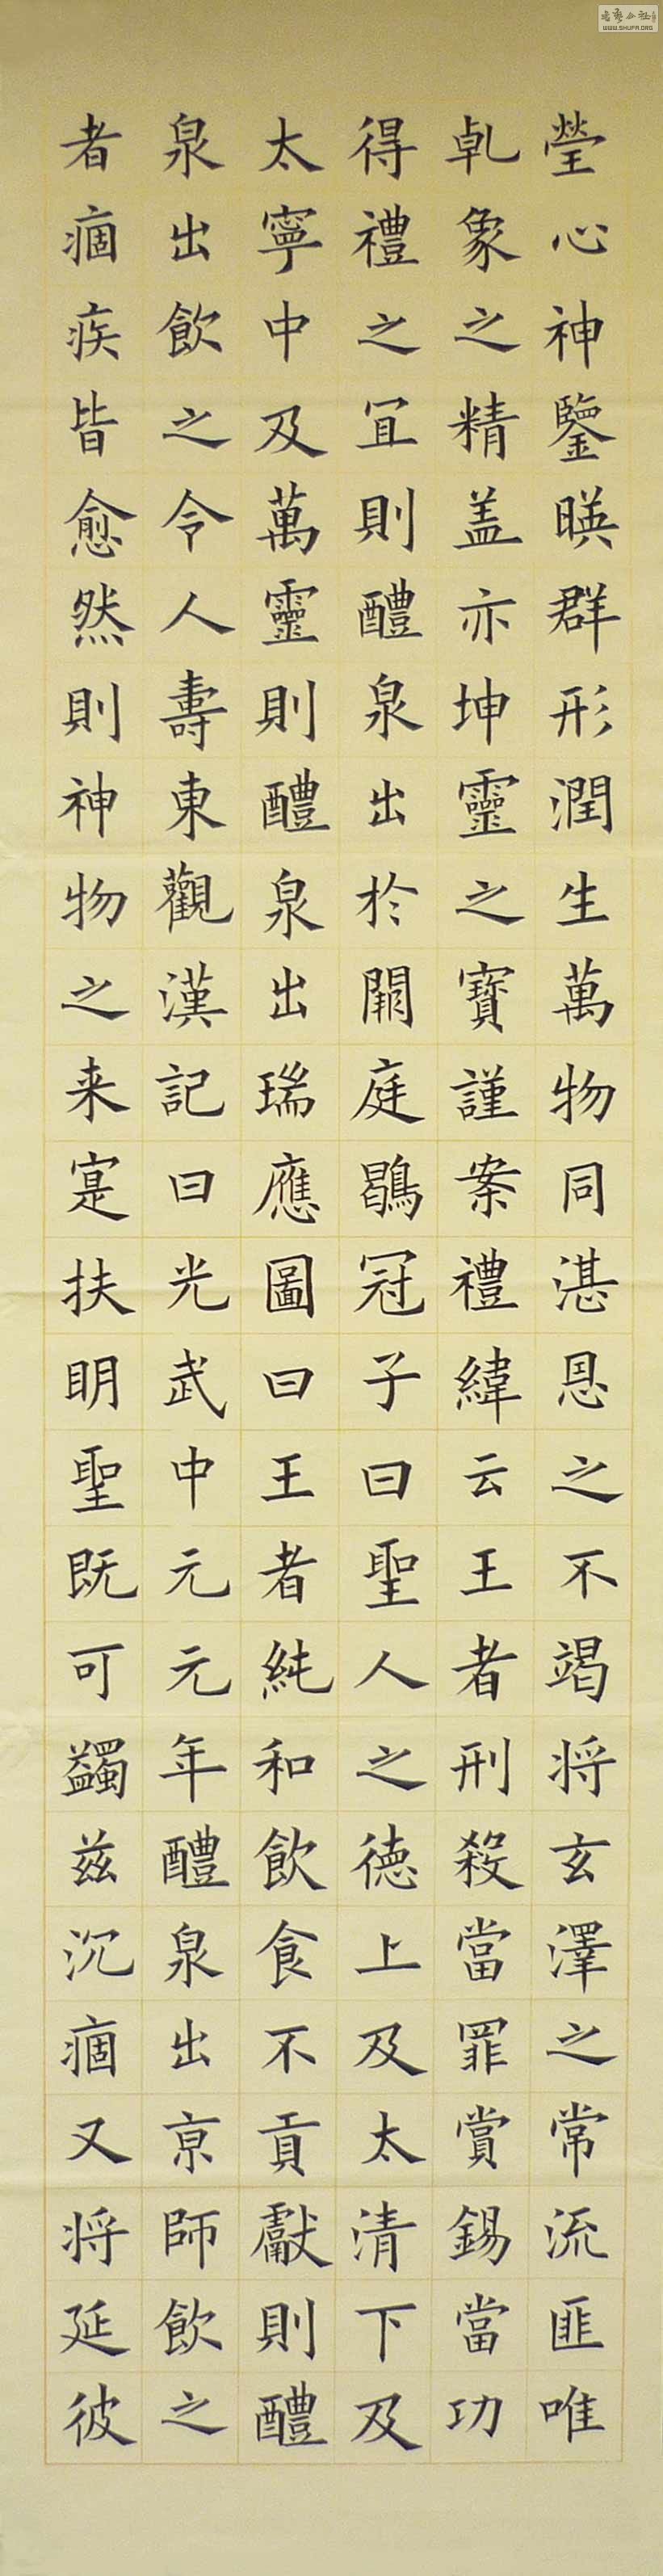 瑩心神鑒暎群形潤生萬物同湛恩之不竭将玄澤之常流匪唯
乹象之精盖亦坤靈之寶謹案禮緯云王者刑殺當罪賞錫當功
得禮之冝則醴泉出於闕庭鶡冠子曰聖人之德上及太清下及
太寧中及萬靈則醴泉出瑞應圖曰王者純和飲食不貢獻則醴
泉出飲之令人壽東觀漢記曰光武中元元年醴泉出京師飲之
者痼疾皆愈然則神物之来寔扶明聖既可蠲兹沉痼又将延彼
书艺公社
WWW.SHUFA.ORG